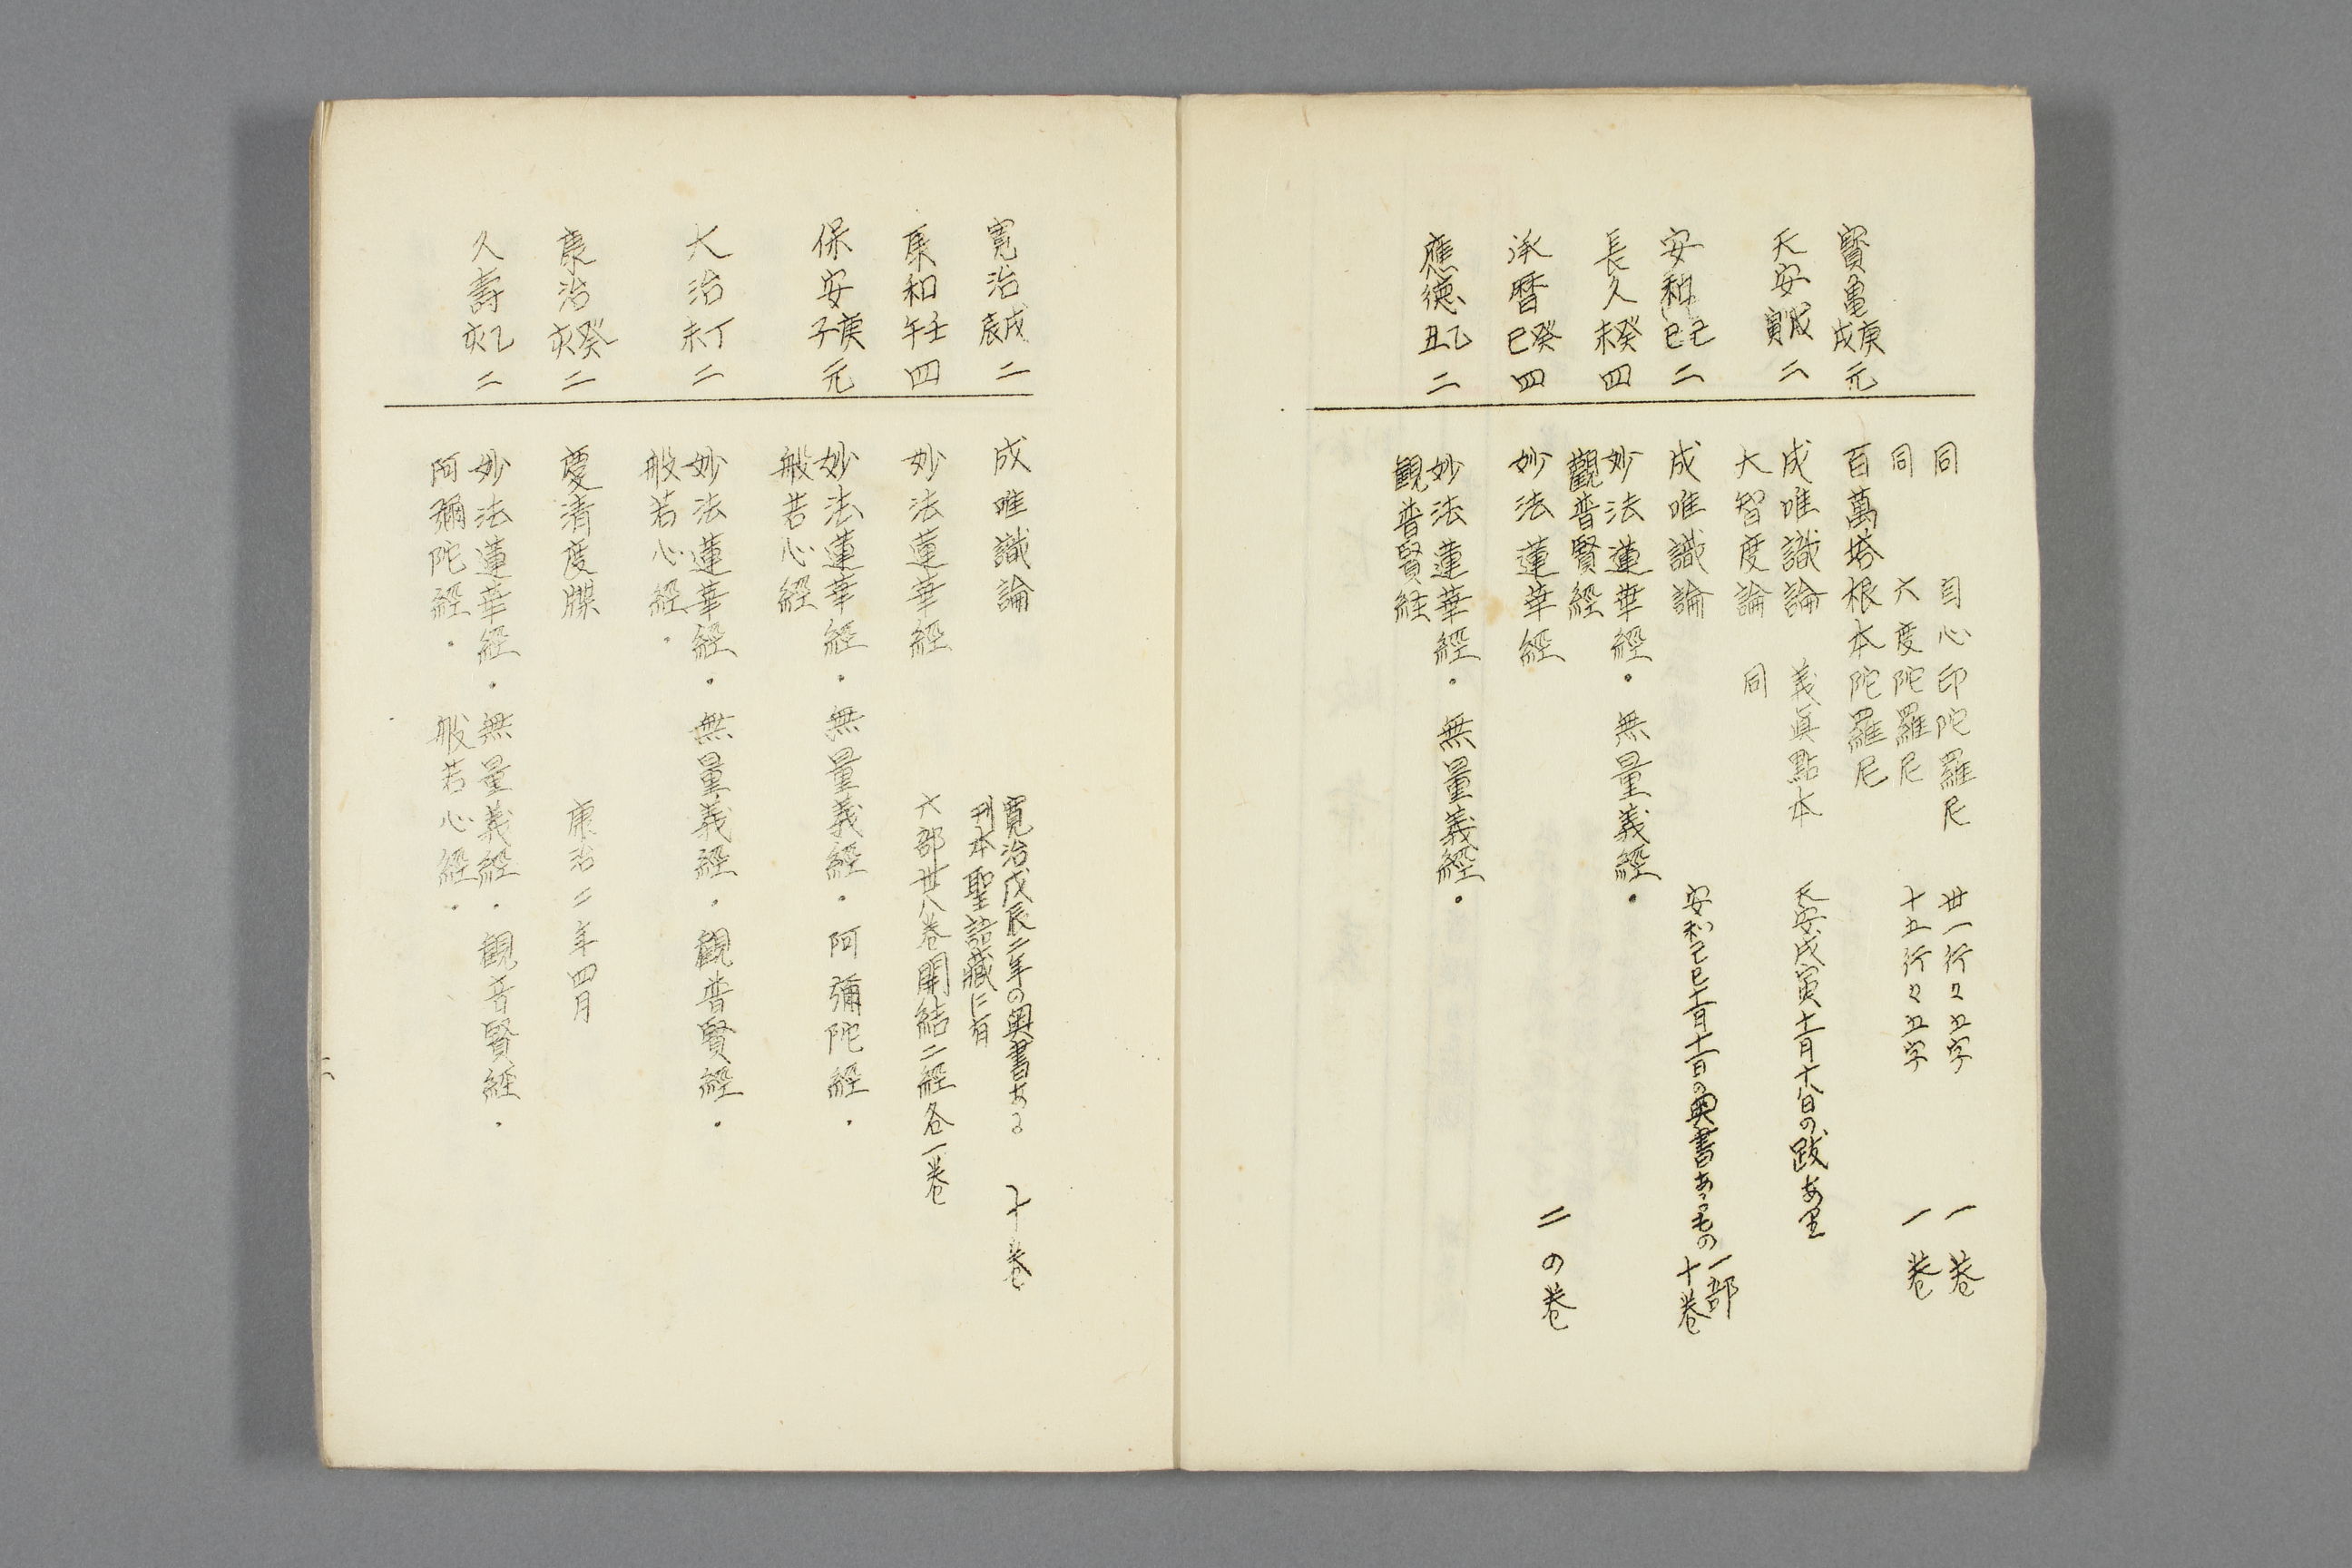 同 自心印陀羅尼 丗一行々五字 一巻
同 大度陀羅尼 十五行々五字 一巻
寳亀庚戌元 百萬塔根本陀羅尼
天安戊寅二 成唯識論 義眞點本 天安戊寅十一月十八日の跋あり
大智度論 同
安和己巳二 成唯識論 安和己巳十一月十一日の奥書あるもの 一部十巻
長久癸未四 妙法蓮華經・無量義經・
觀普賢經
承暦癸巳四 妙法蓮華經 二の巻
應徳乙丑二 妙法蓮華經・無量義經・
観普賢経
寛治戊辰二 成唯識論 寛治戊辰二年の奥書ある 十巻
刊本聖語藏に有
康和壬午四 妙法蓮華經 六部丗八巻開結二經各一巻
保安庚子元 妙法蓮華經・無量義經・阿彌陀經・
般若心經
大治丁未二 妙法蓮華經・無量義經・観普賢經・
般若心經・
康治癸亥二 慶清度牒 康治二年四月
久壽乙亥二 妙法蓮華経・無量義経・観普賢経・
阿彌陀經・般若心經・